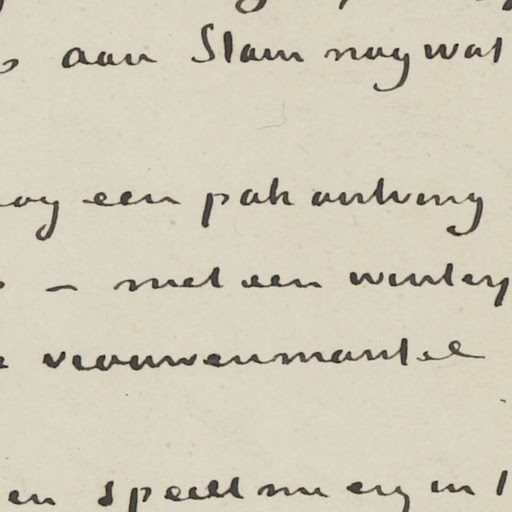 aan Stam nog wat
nog een pak ontving
– met een winterj
vrouwenmantel
en speelt nu erg in